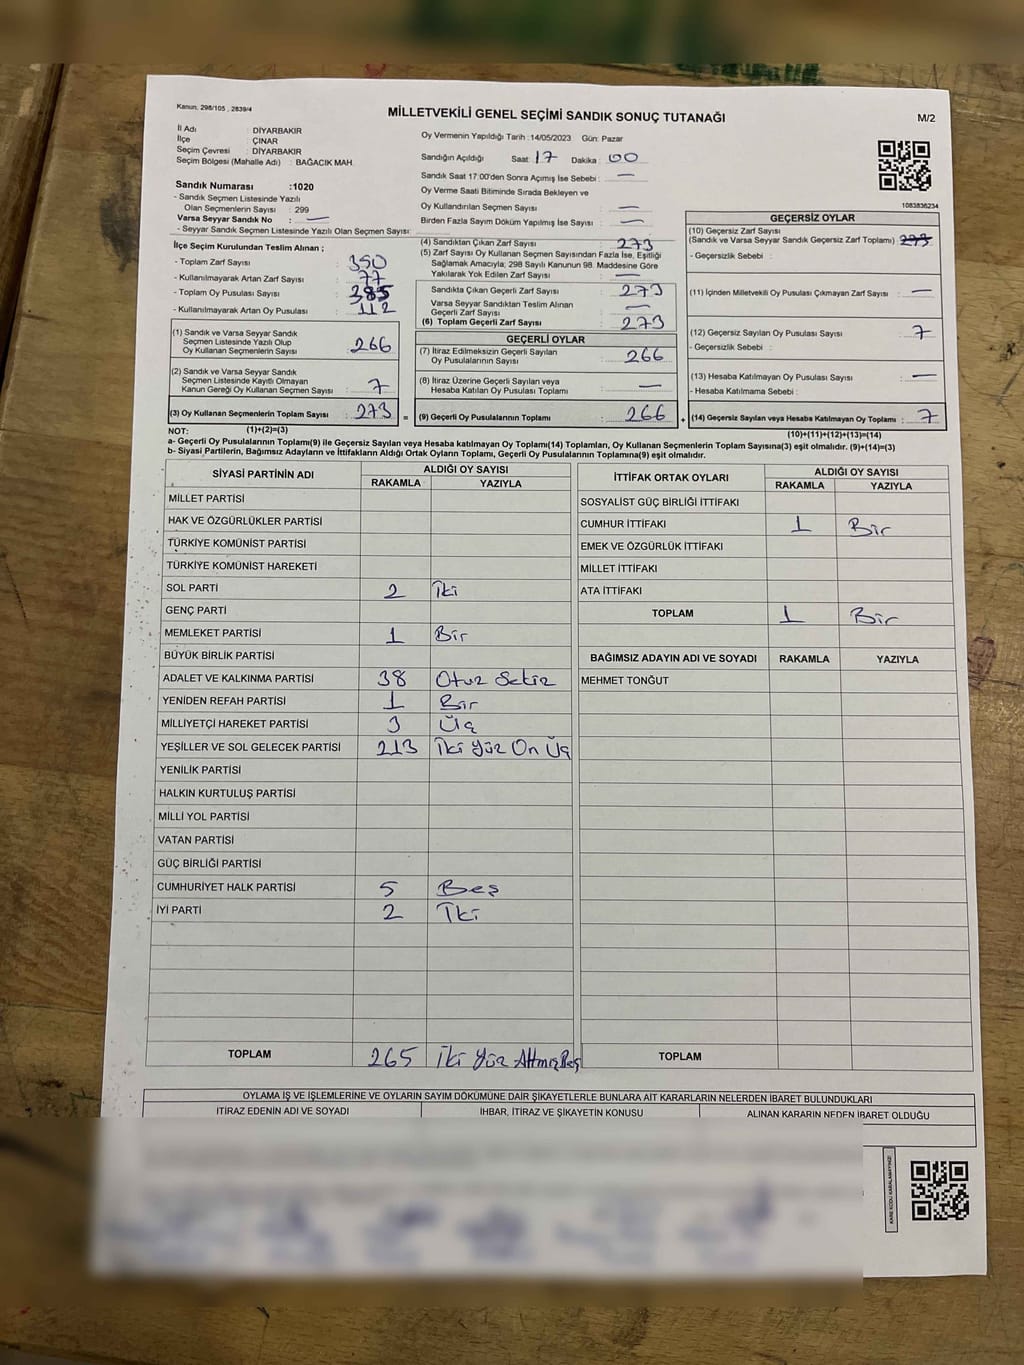 Kanun, 298/105 , 2839/4
MİLLETVEKİLİ GENEL SEÇİMİ SANDIK SONUÇ TUTANAĞI
M/2
İl Adı : DİYARBAKIR
İlçe : ÇINAR
Seçim Çevresi : DİYARBAKIR
Seçim Bölgesi (Mahalle Adı) : BAĞACIK MAH.
Sandık Numarası :1020
- Sandık Seçmen Listesinde Yazılı
Olan Seçmenlerin Sayısı : 299
Varsa Seyyar Sandık No : —
- Seyyar Sandık Seçmen Listesinde Yazılı Olan Seçmen Sayısı:
İlçe Seçim Kurulundan Teslim Alınan ;
- Toplam Zarf Sayısı : 350
- Kullanılmayarak Artan Zarf Sayısı : 77
- Toplam Oy Pusulası Sayısı : 385
- Kullanılmayarak Artan Oy Pusulası : 112
(1) Sandık ve Varsa Seyyar Sandık
Seçmen Listesinde Yazılı Olup
Oy Kullanan Seçmenlerin Sayısı : 266
(2) Sandık ve Varsa Seyyar Sandık
Seçmen Listesinde Kayıtlı Olmayan
Kanun Gereği Oy Kullanan Seçmen Sayısı : 7
(3) Oy Kullanan Seçmenlerin Toplam Sayısı : 273 =
Oy Vermenin Yapıldığı Tarih : 14/05/2023 Gün: Pazar
Sandığın Açıldığı Saat: 17 Dakika : 00
Sandık Saat 17:00'den Sonra Açımış İse Sebebi : —
Oy Verme Saati Bitiminde Sırada Bekleyen ve
Oy Kullandırılan Seçmen Sayısı : —
Birden Fazla Sayım Döküm Yapılmış İse Sayısı : —
(4) Sandıktan Çıkan Zarf Sayısı : 273
(5) Zarf Sayısı Oy Kullanan Seçmen Sayısından Fazla İse, Eşitliği
Sağlamak Amacıyla; 298 Sayılı Kanunun 98. Maddesine Göre
Yakılarak Yok Edilen Zarf Sayısı : —
Sandıkta Çıkan Geçerli Zarf Sayısı : 273
Varsa Seyyar Sandıktan Teslim Alınan
Geçerli Zarf Sayısı : —
(6) Toplam Geçerli Zarf Sayısı : 273
GEÇERLİ OYLAR
(7) İtiraz Edilmeksizin Geçerli Sayılan
Oy Pusulalarının Sayısı : 266
(8) İtiraz Üzerine Geçerli Sayılan veya
Hesaba Katılan Oy Pusulası Toplamı : —
(9) Geçerli Oy Pusulalarının Toplamı : 266 +
1083836234
GEÇERSİZ OYLAR
(10) Geçersiz Zarf Sayısı
(Sandık ve Varsa Seyyar Sandık Geçersiz Zarf Toplamı) : 273
- Geçersizlik Sebebi :
(11) İçinden Milletvekili Oy Pusulası Çıkmayan Zarf Sayısı : —
(12) Geçersiz Sayılan Oy Pusulası Sayısı : 7
- Geçersizlik Sebebi :
(13) Hesaba Katılmayan Oy Pusulası Sayısı : —
- Hesaba Katılmama Sebebi :
(14) Geçersiz Sayılan veya Hesaba Katılmayan Oy Toplamı : 7
NOT: (1)+(2)=(3)
(10)+(11)+(12)+(13)=(14)
a- Geçerli Oy Pusulalarının Toplamı(9) ile Geçersiz Sayılan veya Hesaba katılmayan Oy Toplamı(14) Toplamları, Oy Kullanan Seçmenlerin Toplam Sayısına(3) eşit olmalıdır. (9)+(14)=(3)
b- Siyasi Partilerin, Bağımsız Adayların ve İttifakların Aldığı Ortak Oyların Toplamı, Geçerli Oy Pusulalarının Toplamına(9) eşit olmalıdır.
SİYASİ PARTİNİN ADI ALDIĞI OY SAYISI
RAKAMLA YAZIYLA
MİLLET PARTİSİ
HAK VE ÖZGÜRLÜKLER PARTİSİ
TÜRKİYE KOMÜNİST PARTİSİ
TÜRKİYE KOMÜNİST HAREKETİ
SOL PARTİ 2 İki
GENÇ PARTİ
MEMLEKET PARTİSİ 1 Bir
BÜYÜK BİRLİK PARTİSİ
ADALET VE KALKINMA PARTİSİ 38 Otuz Sekiz
YENİDEN REFAH PARTİSİ 1 Bir
MİLLİYETÇİ HAREKET PARTİSİ 3 Üç
YEŞİLLER VE SOL GELECEK PARTİSİ 213 İki Yüz On Üç
YENİLİK PARTİSİ
HALKIN KURTULUŞ PARTİSİ
MİLLİ YOL PARTİSİ
VATAN PARTİSİ
GÜÇ BİRLİĞİ PARTİSİ
CUMHURİYET HALK PARTİSİ 5 Beş
İYİ PARTİ 2 İki
TOPLAM 265 İki Yüz Altmış Beş
İTTİFAK ORTAK OYLARI ALDIĞI OY SAYISI
RAKAMLA YAZIYLA
SOSYALİST GÜÇ BİRLİĞİ İTTİFAKI
CUMHUR İTTİFAKI 1 Bir
EMEK VE ÖZGÜRLÜK İTTİFAKI
MİLLET İTTİFAKI
ATA İTTİFAKI
TOPLAM 1 Bir
BAĞIMSIZ ADAYIN ADI VE SOYADI RAKAMLA YAZIYLA
MEHMET TONĞUT
TOPLAM
OYLAMA İŞ VE İŞLEMLERİNE VE OYLARIN SAYIM DÖKÜMÜNE DAİR ŞİKAYETLERLE BUNLARA AİT KARARLARIN NELERDEN İBARET BULUNDUKLARI
İTİRAZ EDENİN ADI VE SOYADI İHBAR, İTİRAZ VE ŞİKAYETİN KONUSU ALINAN KARARIN NEDEN İBARET OLDUĞU
KARE KODU KARALAMAYINIZ!